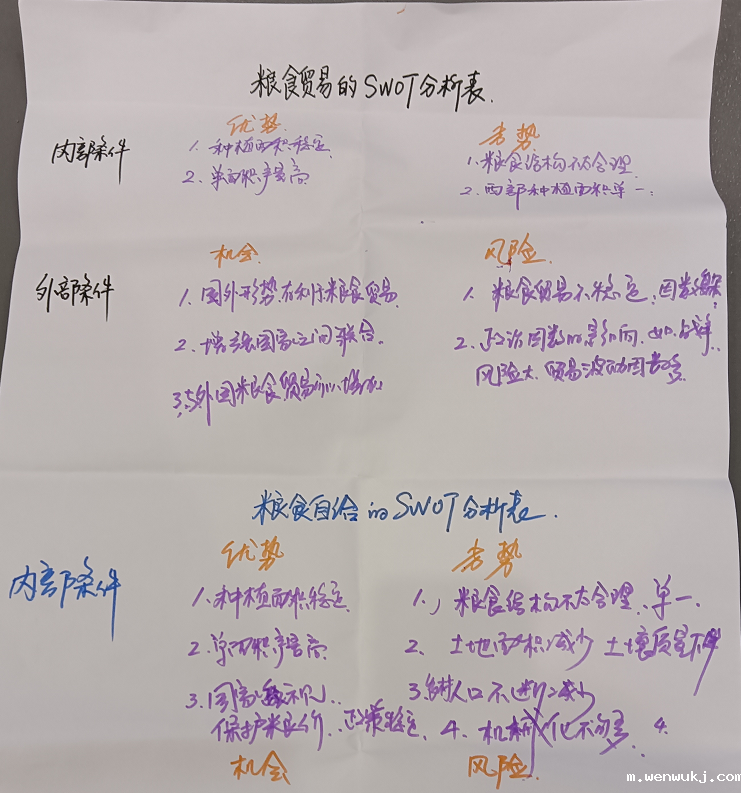 粮食贸易的SWOT分析表.
优势.
劣势
内部条件
1. 种植面积稳定.
2. 单面积产量高
1. 粮食结构不太合理
2. 西部种植面积单一.
机会
风险
外部条件
1. 国外形势有利于粮食贸易.
2. 增强国家之间联合.
3. 与外国粮食贸易
1. 粮食贸易不稳定.
2. 政治因数的影响, 如战争.
风险大. 贸易波动因数多
粮食自给的SWOT分析表.
优势
劣势
内部条件
1. 种植面积稳定
2. 单面积产量高
3. 国家
保护粮食价. 政策稳定
1. 粮食结构不太合理. 单一.
2. 土地面积减少 土壤质量下降
3. 农村人口不断减少
4. 机械化不够 4.
机会
风险.
m.wenwukj.com